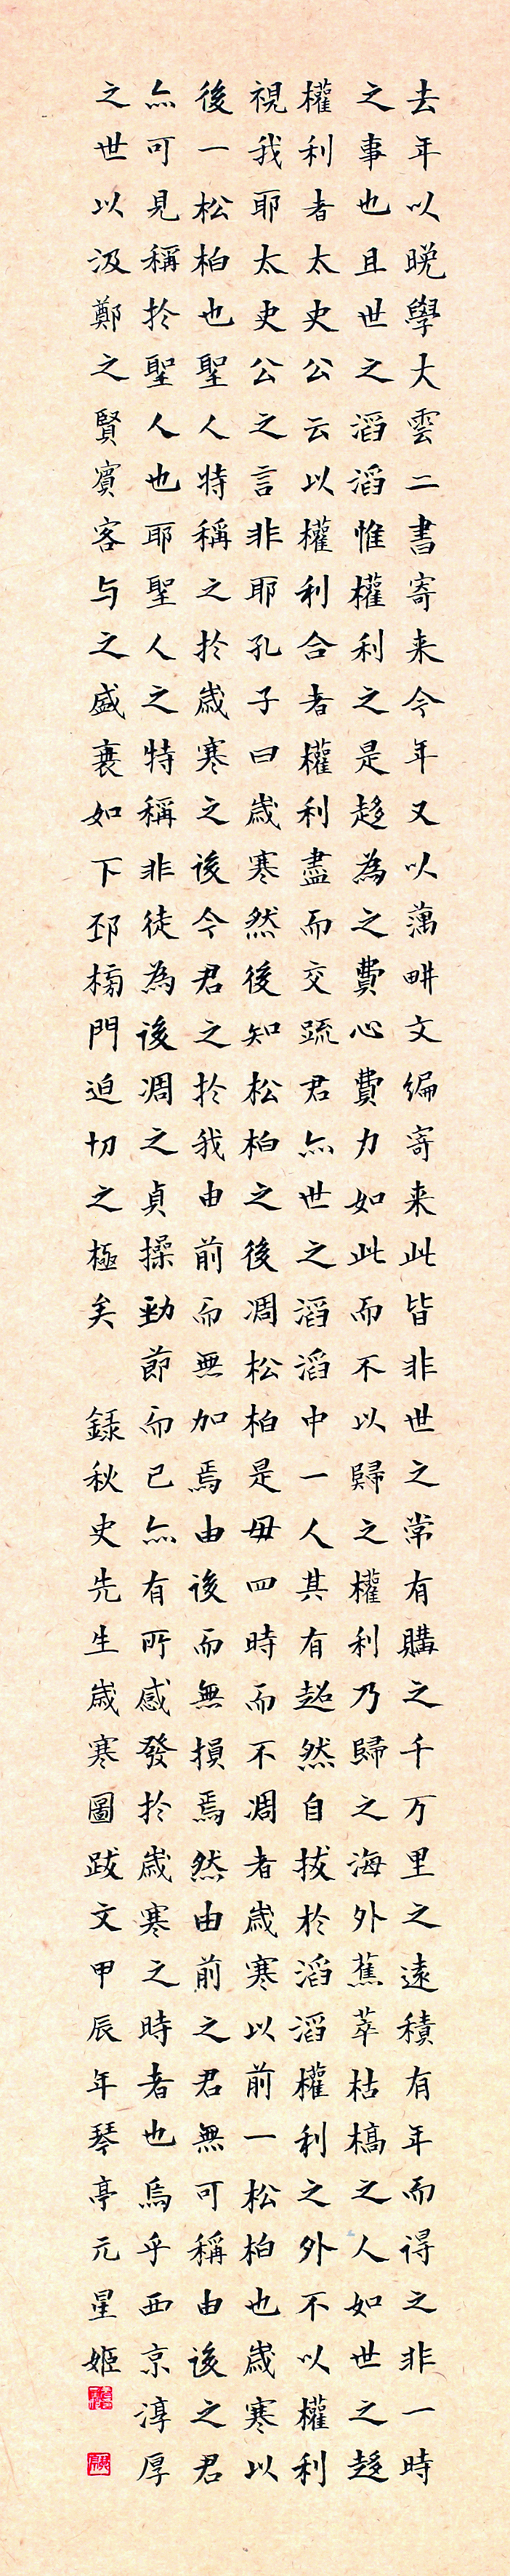 去年以晚學大雲二書寄来今年又以藕畊文編寄来此皆非世之常有購之千万里之遠積有年而得之非一時
之事也且世之滔滔惟權利之是趍為之費心費力如此而不以歸之權利乃歸之海外蕉萃枯槁之人如世之趍
權利者太史公云以權利合者權利盡而交踈君亦世之滔滔中一人其有超然自拔於滔滔權利之外不以權利
視我耶太史公之言非耶孔子曰歲寒然後知松柏之後凋松柏是毋四時而不凋者歲寒以前一松柏也歲寒以
後一松柏也聖人特稱之於歲寒之後今君之於我由前而無加焉由後而無損焉然由前之君無可稱由後之君
亦可見稱於聖人也耶聖人之特稱非徒為後凋之貞操勁節而已亦有所感發於歲寒之時者也烏乎西京淳厚
之世以汲鄭之賢賓客与之盛衰如下邳榜門迫切之極矣 錄秋史先生歲寒圖跋文甲辰年琴亭元星姬